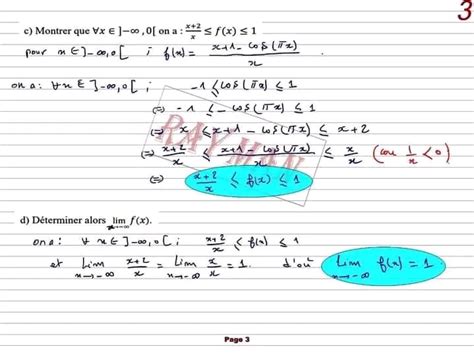 3
c) Montrer que ∀x ∈ ]−∞ , 0[ on a : (x+2)/x ≤ f(x) ≤ 1
pour x ∈ ]-∞, 0[ ; f(x) = (x+1-cos(πx))/x
on a : ∀x ∈ ]-∞, 0[ ; -1 ≤ cos(πx) ≤ 1
⇔ -1 ≤ -cos(πx) ≤ 1
⇔ x ≤ x+1-cos(πx) ≤ x+2
⇔ (x+2)/x ≤ (x+1-cos(πx))/x ≤ x/x (car 1/x < 0)
⇔ (x+2)/x ≤ f(x) ≤ 1
RAYMAN
d) Déterminer alors lim x→−∞ f(x).
on a : ∀ x ∈ ]-∞, 0[ ; (x+2)/x ≤ f(x) ≤ 1
et lim x→-∞ (x+2)/x = lim x→-∞ x/x = 1. d'où lim x→-∞ f(x) = 1.
Page 3